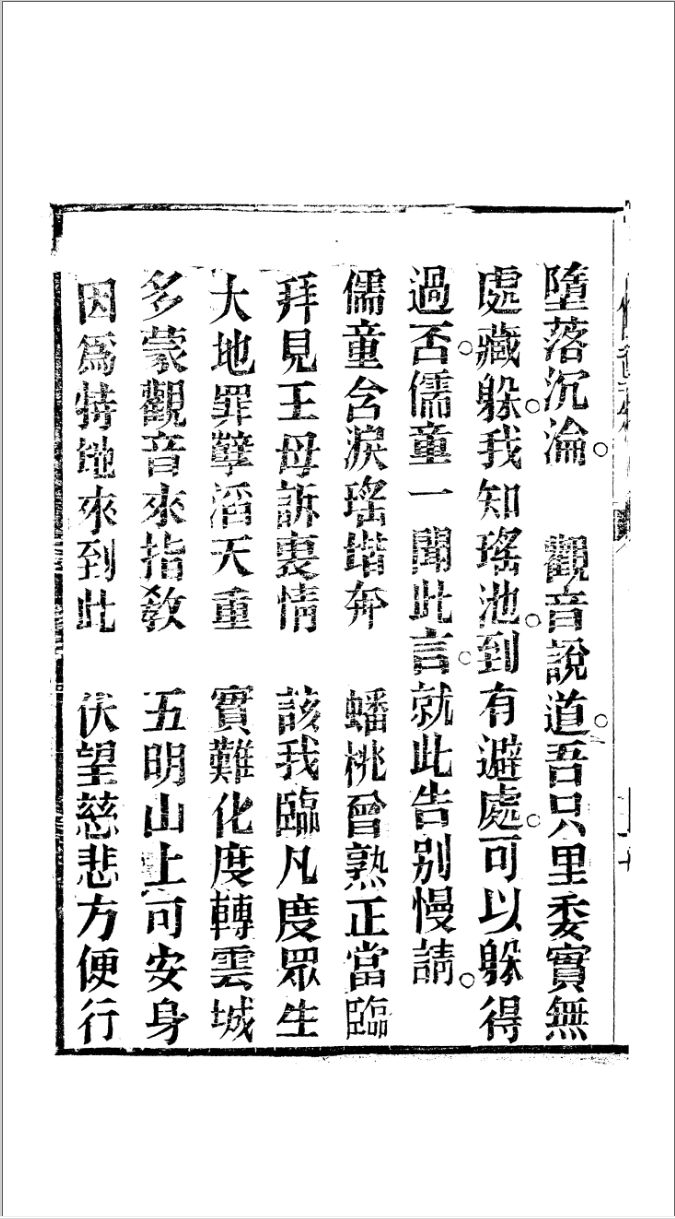 墮落沉淪。　觀音說道。吾只里委實無
處藏躲。我知瑤池。到有避處。可以躲得
過否。儒童一聞此言。就此告別慢請。
儒童含淚瑤堦奔　蟠桃會熟正當臨
拜見王母訴衷情　該我臨凡度眾生
大地罪孽滔天重　實難化度轉雲城
多蒙觀音來指教　五明山上可安身
因為特地來到此　伏望慈悲方便行